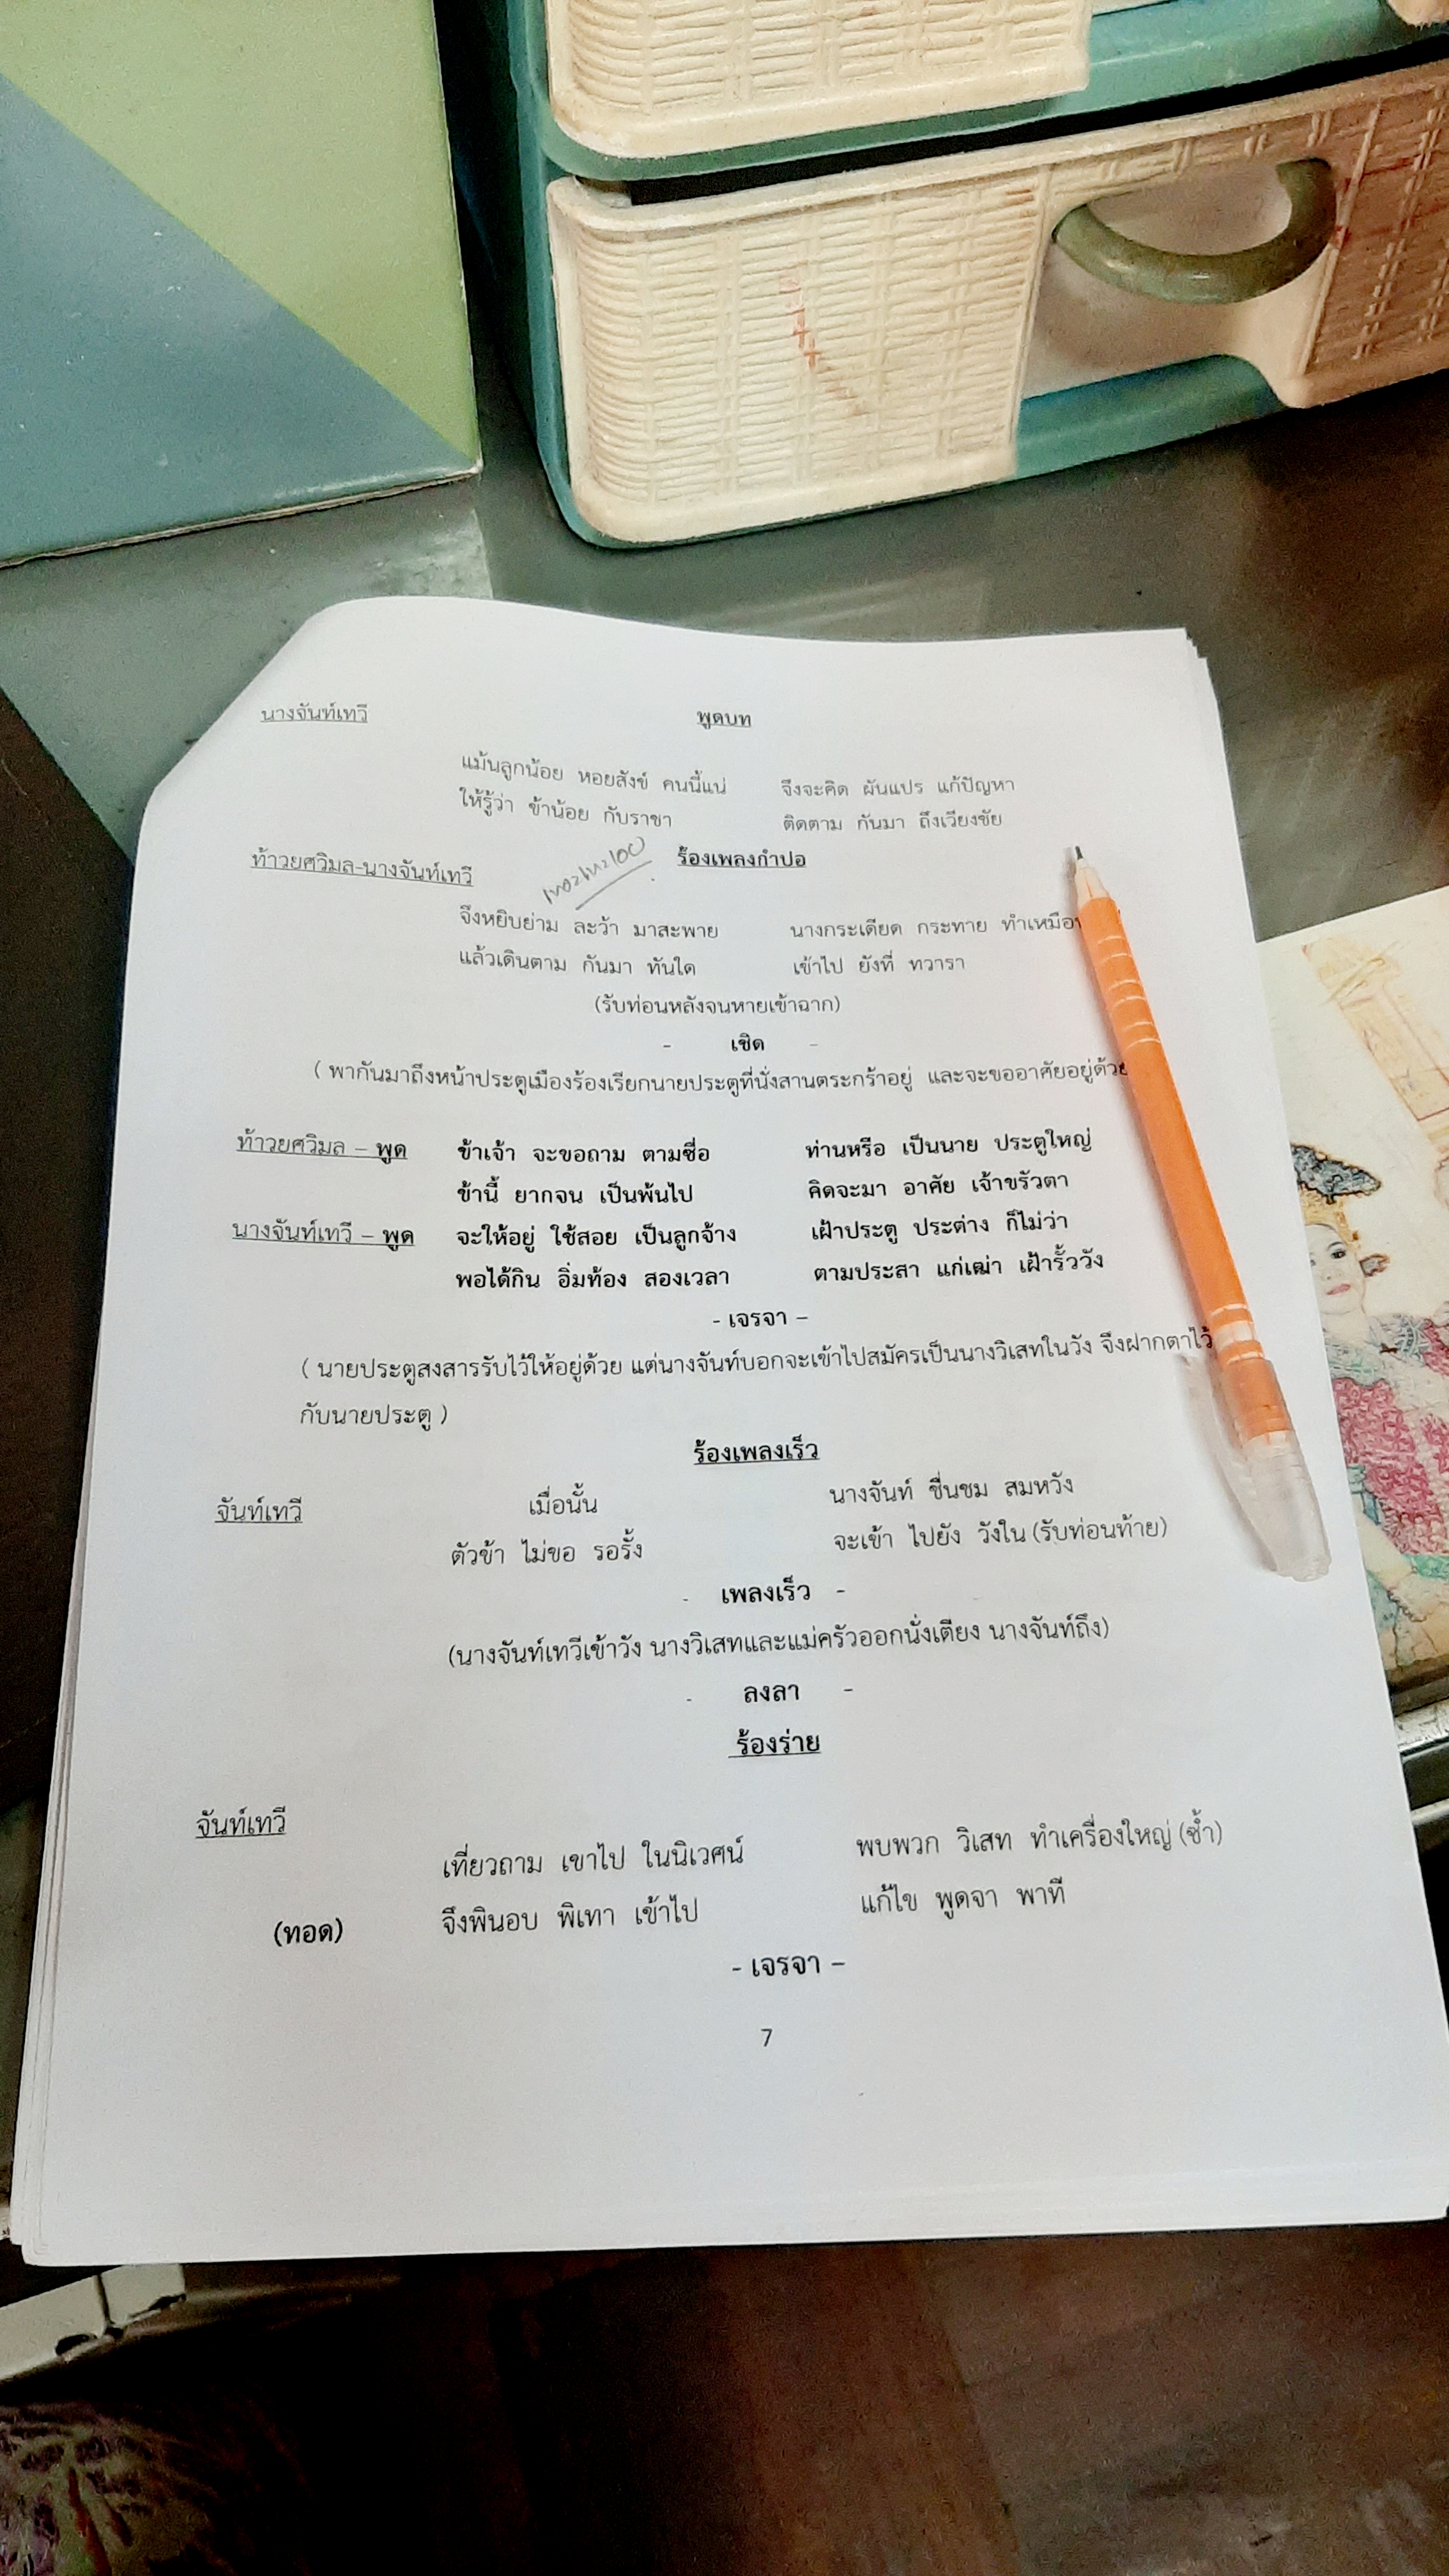 นางจันท์เทวี พูดบท
แม้นลูกน้อย หอยสังข์ คนนี้แน่ จึงจะคิด ผันแปร แก้ปัญหา
ให้รู้ว่า ข้าน้อย กับราชา ติดตาม กันมา ถึงเวียงชัย
ท้าวยศวิมล-นางจันท์เทวี ร้องเพลงกำปอ
จึงหยิบย่าม ละว้า มาสะพาย นางกระเดียด กระทาย
แล้วเดินตาม กันมา ทันใด เข้าไป ยังที่ ทวารา
(รับท่อนหลังจนหายเข้าฉาก)
- เชิด -
( พากันมาถึงหน้าประตูเมืองร้องเรียกนายประตูที่นั่งสานตระกร้าอยู่ และจะขออาศัยอยู่ด้วย
ท้าวยศวิมล – พูด ข้าเจ้า จะขอถาม ตามซื่อ ท่านหรือ เป็นนาย ประตูใหญ่
ข้านี้ ยากจน เป็นพ้นไป คิดจะมา อาศัย เจ้าขรัวตา
นางจันท์เทวี – พูด จะให้อยู่ ใช้สอย เป็นลูกจ้าง เฝ้าประตู ประต่าง ก็ไม่ว่า
พอได้กิน อิ่มท้อง สองเวลา ตามประสา แก่เฒ่า เฝ้ารั้ววัง
- เจรจา –
( นายประตูสงสารรับไว้ให้อยู่ด้วย แต่นางจันท์บอกจะเข้าไปสมัครเป็นนางวิเสทในวัง จึงฝากตาไว้
กับนายประตู )
ร้องเพลงเร็ว
จันท์เทวี เมื่อนั้น นางจันท์ ชื่นชม สมหวัง
ตัวข้า ไม่ขอ รอรั้ง จะเข้า ไปยัง วังใน (รับท่อนท้าย)
- เพลงเร็ว -
(นางจันท์เทวีเข้าวัง นางวิเสทและแม่ครัวออกนั่งเตียง นางจันท์ถึง)
- ลงลา -
ร้องร่าย
จันท์เทวี
เที่ยวถาม เขาไป ในนิเวศน์ พบพวก วิเสท ทำเครื่องใหญ่ (ซ้ำ)
(ทอด) จึงพินอบ พิเทา เข้าไป แก้ไข พูดจา พาที
- เจรจา –
7